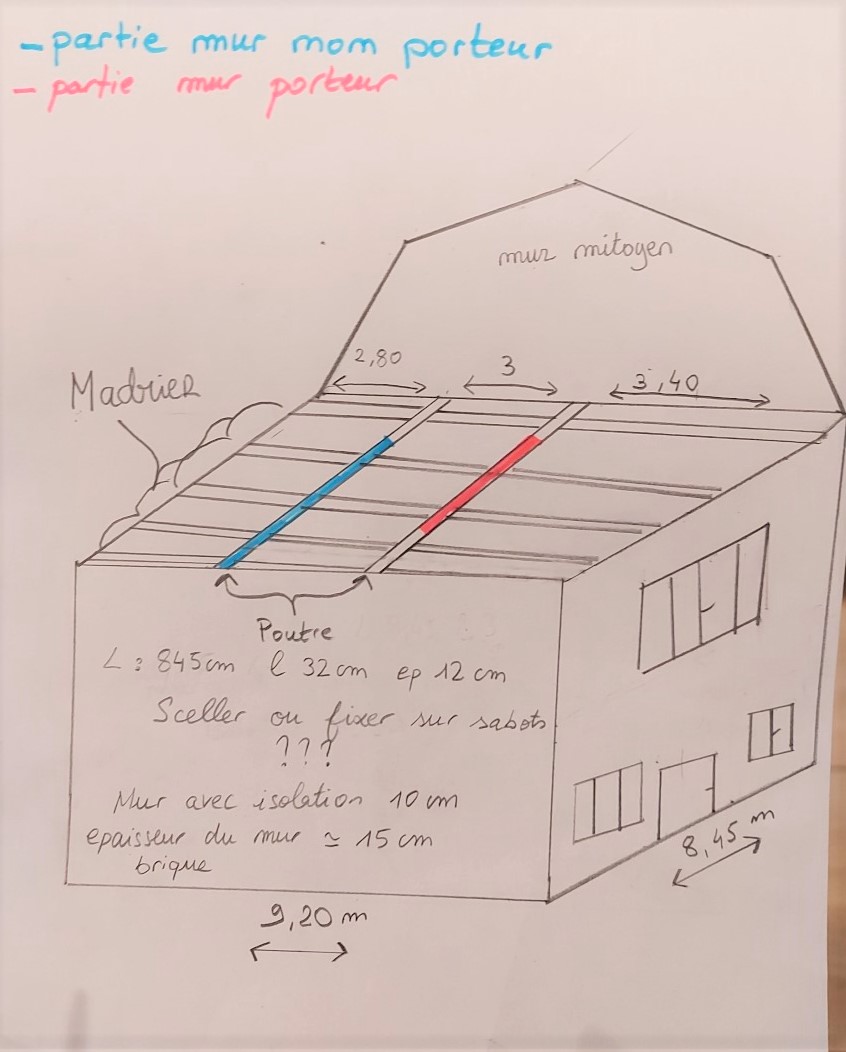 - partie mur mom porteur
- partie mur porteur
mur mitoyen
2,80
3
3,40
Madrier
Poutre
L : 845cm l 32cm ep 12 cm
Sceller ou fixer sur sabots
???
Mur avec isolation 10 cm
epaisseur du mur ≃ 15 cm
brique
8,45 m
9,20 m